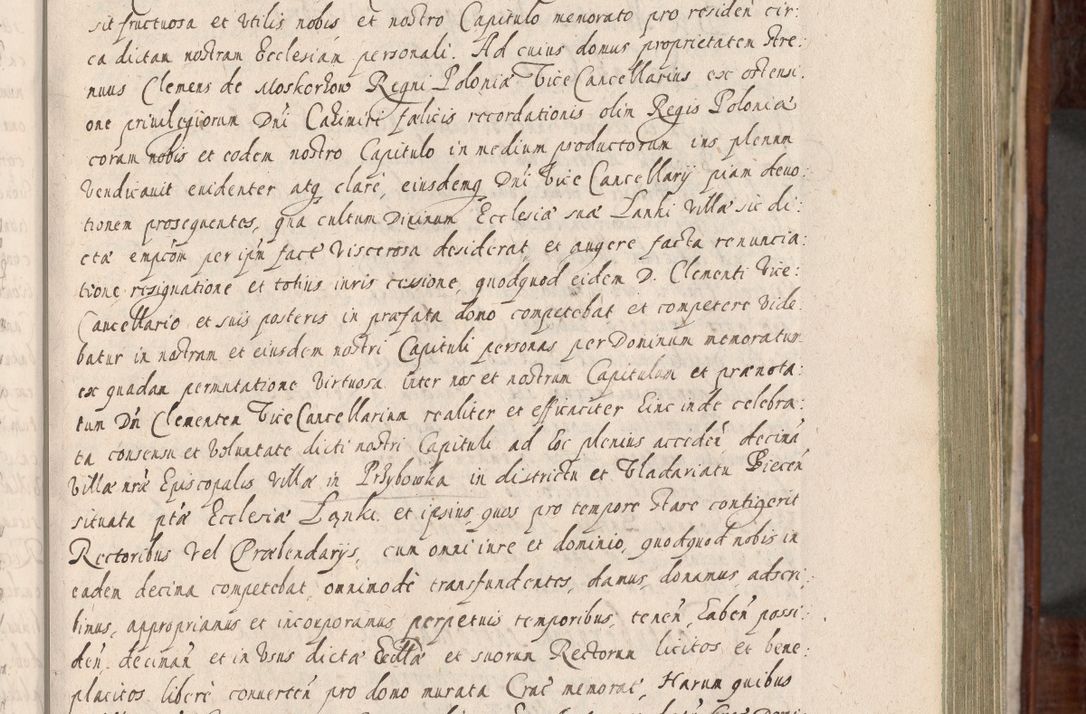 sit fructuosa et Vtilis nobis et nostro Capitulo memorato pro residen̄ cir:
ca dictam nostram Ecclesiam personali. Ad cuius domus proprietatem Stre:
nuus Clemens de Moskorzow Regni Poloniæ Vice Cancellarius ex ostensi:
one priuilegiorum Dn̄i Casimiri fælicis recordationis olim Regis Poloniæ
coram nobis et eodem nostro Capitulo in medium productorum ius plenum
Vendicauit euidenter atq́ clarè, eiusdemq́ Dn̄i Vice Cancellarij piam deuo:
tionem prosequentes, qua cultum Diuinum Ecclesiæ suæ Lanki Villæ sic di:
ctæ empc̄om per ip̄m factæ Viscerosa desiderat et augere facta renuncia:
tione, resignatione et totius iuris cessione, quodquod eidem D. Clementi Vice:
Cancellario et suis posteris in præfata domo competebat et competere Vide:
batur in nostram et eiusdem nostri Capituli personas per Dominum memoratum
ex quadam permutatione Virtuosa inter nos et nostrum Capitulum et prænota:
tum Dn̄ Clementem Vice Cancellarium realiter et efficaciter hinc inde celebra:
ta consensu et Voluntate dicti nostri Capituli ad hoc plenius acceden̄ decimā
Villæ nr̄æ Episcopalis Villæ in Przybowka in districtu et Wladariatu Biecen̄
situata pt̄æ Ecclesiæ Lanki et ipsius, quos pro tempore stare contigerit
Rectoribus Vel Præbendarijs, cum omni iure et dominio, quodquod nobis in
eadem decima competebat, omnimodè transfundentes, damus, donamus, adscri:
bimus, appropriamus et incorporamus perpetuis temporibus, tenen̄, haben̄ possi:
den̄ decimam et in Vsus dictæ Ecc̄llæ et suorum Rectorum licitos et bene:
placitos liberè conuerten̄ pro domo murata Crac̄ memorat̄, Harum quibus